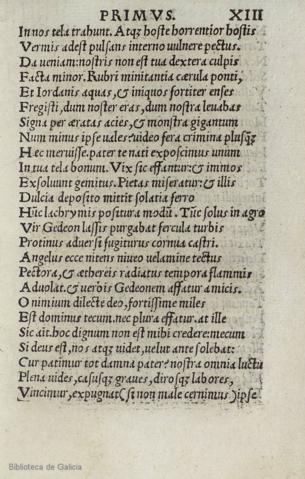 PRIMVS. XIII
In nos tela trahunt. Atqȝ hoste horrentior hostis
Vermis adest pulsans interno uulnere pectus.
Da ueniam: nostris non est tua dextera culpis
Facta minor. Rubri minitantia cærula ponti,
Et Iordanis aquas, & iniquos fortiter enses
Fregisti, dum noster eras, dum nostra leuabas
Signa per æratas acies, & monstra gigantum
Num minus ipse uales? uideo fera crimina plusqȝ
Hæc meruisse. pater te nati exposcimus unum
In tua tela bonum. Vix sic effantur: & immos
Exsoluunt gemitus. Pietas miseratur: & illis
Dulcia deposito mittit solatia ferro
Hūc lachrymis positura modū. Tūc solus in agro
Vir Gedeon lassis purgabat fercula turbis
Protinus aduersi fugiturus cornua castri.
Angelus ecce nitens niueo uelamine tectus
Pectora, & æthereis radiatus tempora flammis
Aduolat. & uerbis Gedeonem affatur amicis.
O nimium dilecte deo, fortissime miles
Est dominus tecum. nec plura effatur. at ille
Sic ait. hoc dignum non est mihi credere: mecum
Si deus est, nos atqȝ uidet, uelut ante solebat:
Cur patimur tot damna pater? nostra omnia luctu
Plena uides, casusqȝ graues, dirosqȝ labores,
Vincimur, expugnat (si non male cernimus) ipse
Biblioteca de Galicia